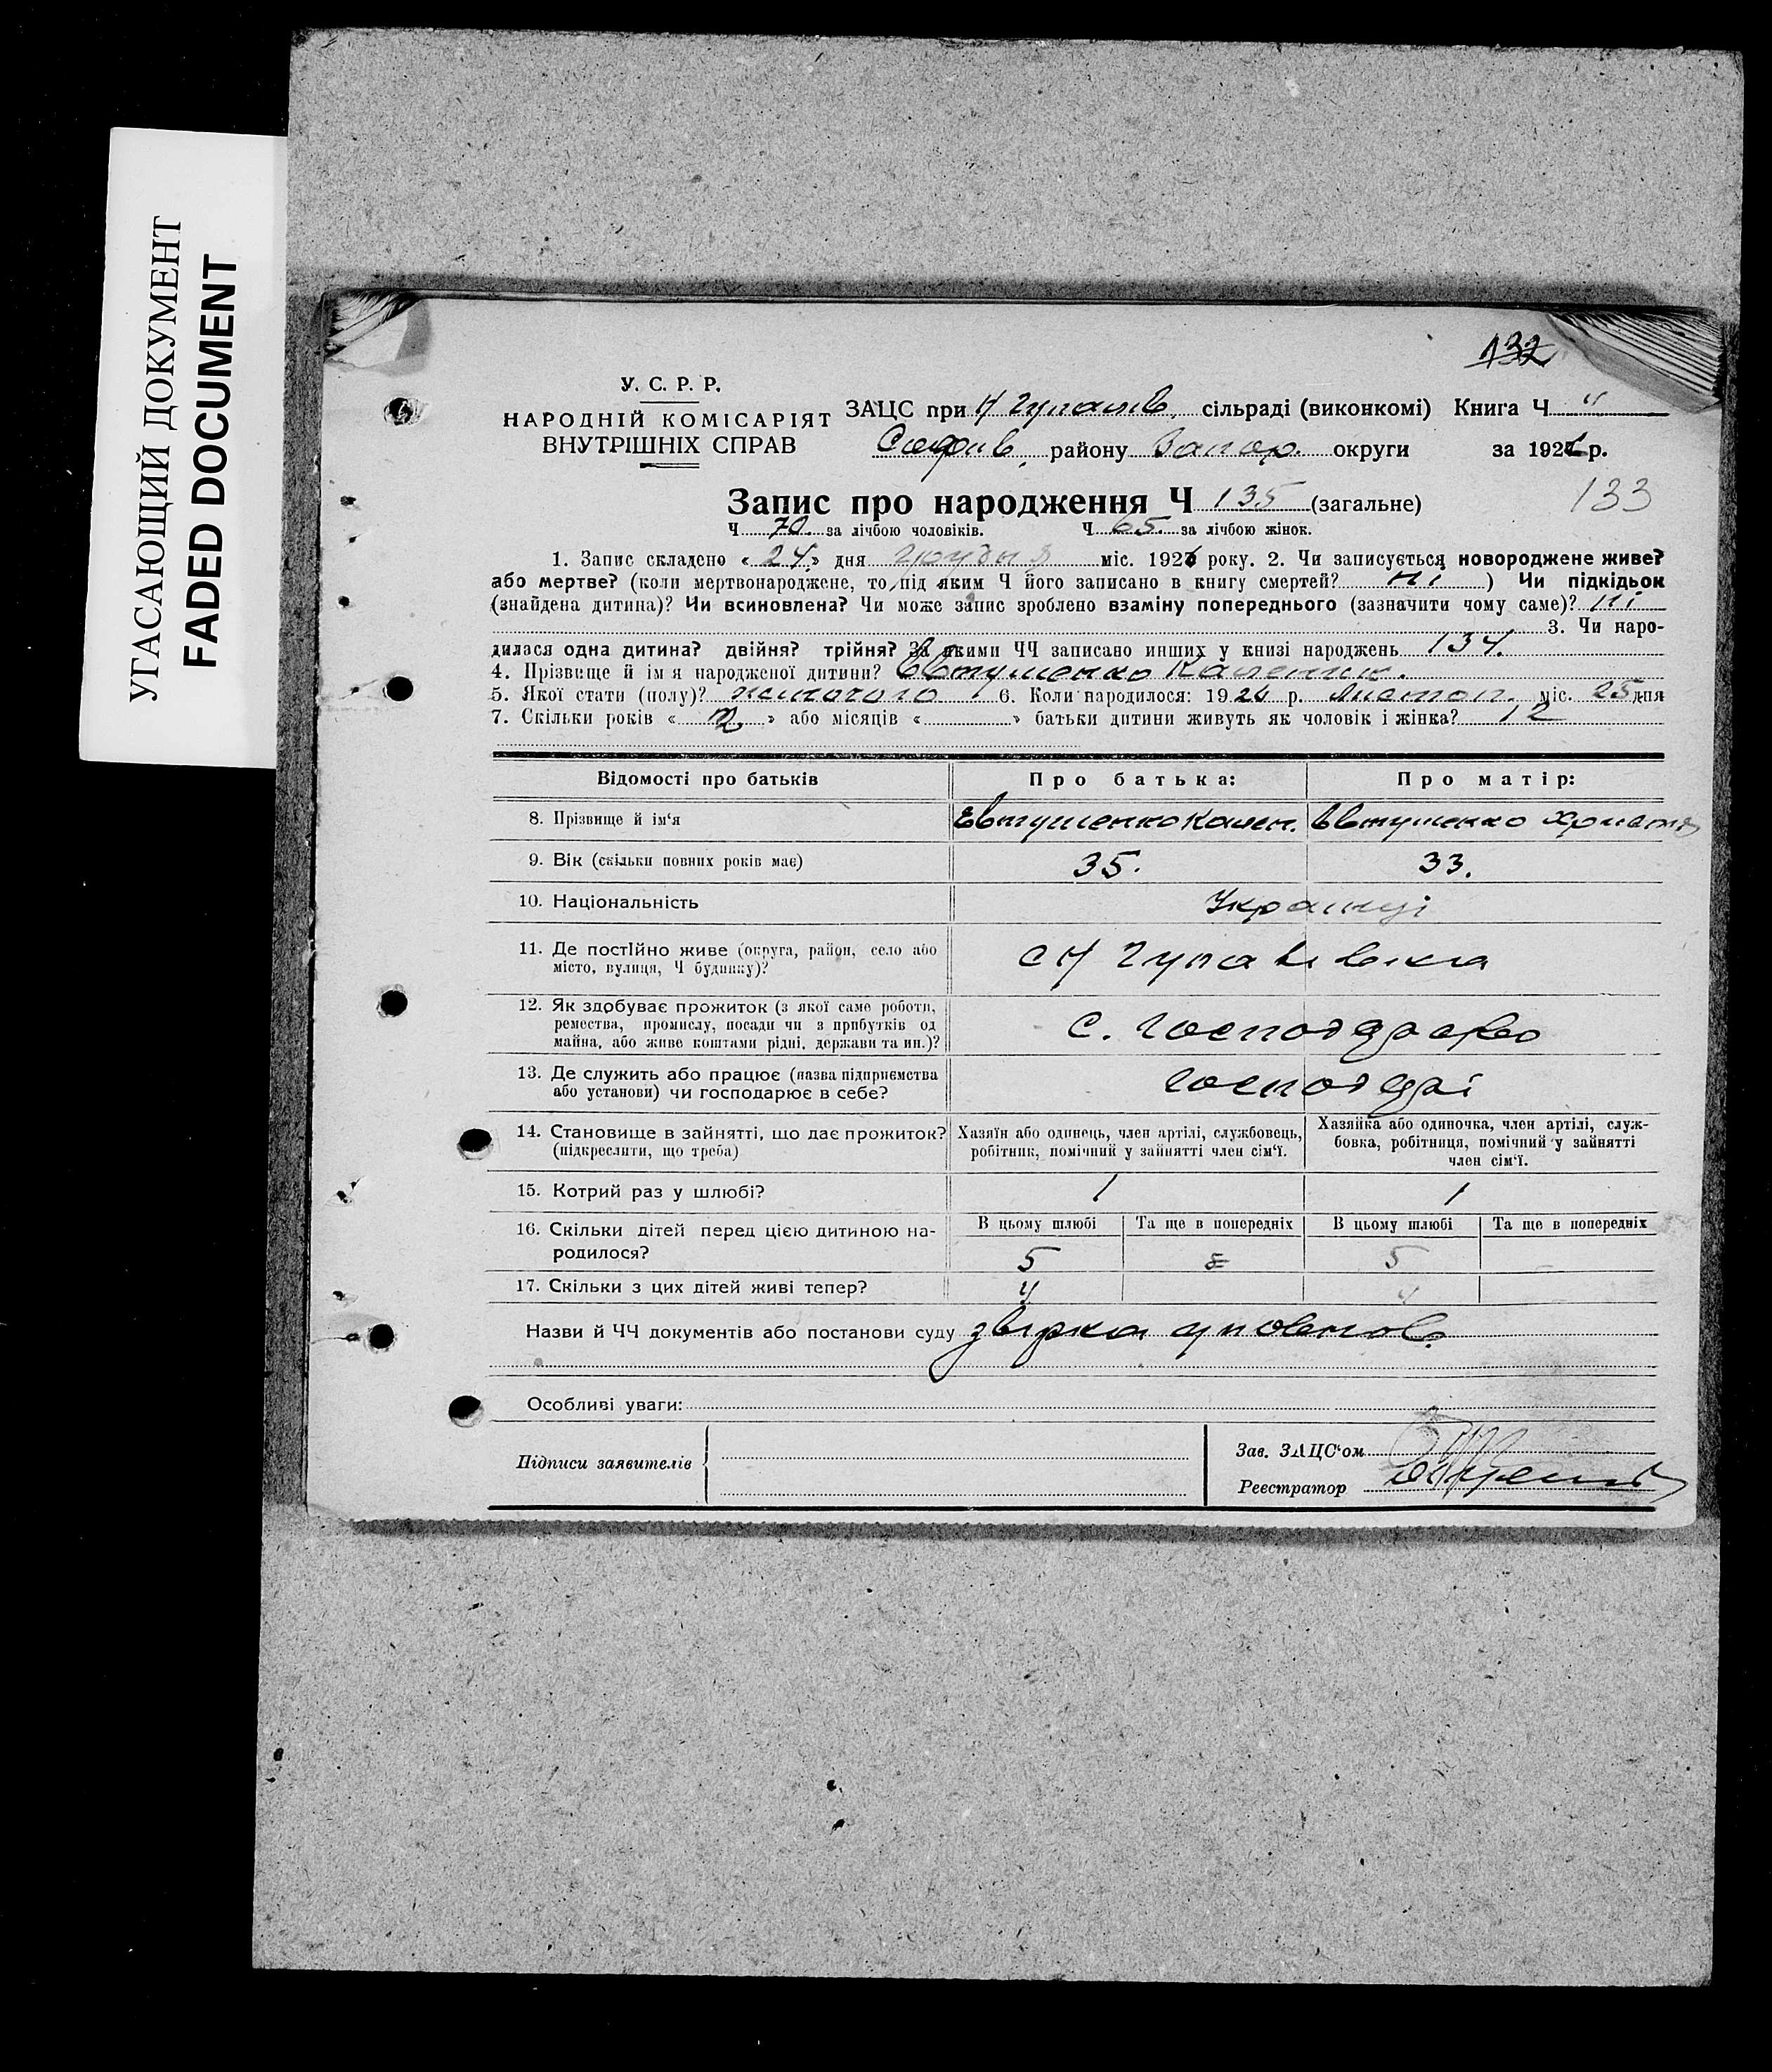 УГАСАЮЩИЙ ДОКУМЕНТ
FADED DOCUMENT
132
У. С. Р. Р.
НАРОДНІЙ КОМІСАРІЯТ
ВНУТРІШНІХ СПРАВ
ЗАЦС при Н Гупалів. сільраді (виконкомі) Книга Ч "
Софіїв. району Запор. округи за 192 р.
133
Запис про народження Ч 135 (загальне)
Ч 70. за лічбою чоловіків. Ч 65. за лічбою жінок.
1. Запис складено «24» дня грудня міс. 192 року. 2. Чи записується новороджене живе?
або мертве? (коли мертвонароджене, то під яким Ч його записано в книгу смертей? ні ) Чи підкідьок
(знайдена дитина)? Чи всиновлена? Чи може запис зроблено взаміну попереднього (зазначити чому саме)? ні
3. Чи наро-
дилася одна дитина? двійня? трійня? За якими ЧЧ записано инших у книзі народжень 134.
4. Прізвище й ім'я народженої дитини? Євтушенко
5. Якої стати (полу)? жіночого 6. Коли народилося: 19 р. Листоп. міс. 25 дня
7. Скільки років « » або місяців « » батьки дитини живуть як чоловік і жінка? 12
Відомості про батьків Про батька: Про матір:
8. Прізвище й ім'я Євтушенко Кален. Євтушенко Христя
9. Вік (скільки повних років має) 35. 33.
10. Національність Українці
11. Де постійно живе (округа, район, село або
місто, вулиця, Ч будинку)? с Н Гупалівка
12. Як здобуває прожиток (з якої саме роботи,
ремества, промислу, посади чи з прибутків од
майна, або живе коштами рідні, держави та ин.)? с. господарство
13. Де служить або працює (назва підприємства
або установи) чи господарює в себе? господарі
14. Становище в зайнятті, що дає прожиток?
(підкреслити, що треба)
Хазяїн або одинець, член артілі, службовець,
робітник, помічний у зайнятті член сім'ї.
Хазяйка або одиночка, член артілі, служ-
бовка, робітниця, помічний у зайнятті
член сім'ї.
15. Котрий раз у шлюбі? 1 1
16. Скільки дітей перед цією дитиною на-
родилося?
В цьому шлюбі Та ще в попередніх В цьому шлюбі Та ще в попередніх
5 5
17. Скільки з цих дітей живі тепер? 4 4
Назви й ЧЧ документів або постанови суду звірка
Особливі уваги:
Підписи заявителів
Зав. ЗАЦС'ом
Реєстратор